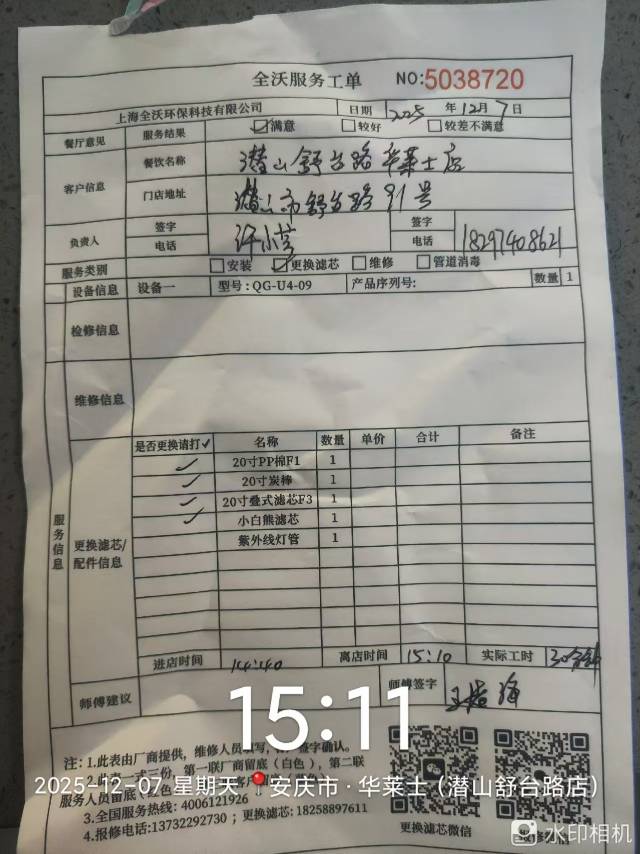 全沃服务工单 NO:5038720
上海全沃环保科技有限公司 日期 2025 年 12月 7 日
餐厅意见 服务结果 ☑满意 □较好 □较差不满意
客户信息 餐饮名称 潜山舒台路华莱士店
门店地址 潜山市舒台路91号
负责人 签字 签字
电话 电话 18297408621
服务类别 □安装 ☑更换滤芯 □维修 □管道消毒
设备信息 设备一 型号:QG-U4-09 产品序列号: 数量 1
检修信息
维修信息
服务信息
更换滤芯/配件信息
是否更换请打✓ 名称 数量 单价 合计 备注
✓ 20寸PP棉F1 1
✓ 20寸炭棒 1
✓ 20寸叠式滤芯F3 1
✓ 小白熊滤芯 1
紫外线灯管 1
进店时间 14:40 离店时间 15:10 实际工时 30分钟
师傅建议 师傅签字
15:11
注:1.此表由厂商提供，维修人员填写，签字确认。
2.此表一式三份，第一联厂商留底（白色），第二联
2025-12-07 星期天 安庆市·华莱士（潜山舒台路店）
服务人员留底
3.全国服务热线: 4006121926
4.报修电话:13732292730；更换滤芯: 18258897611
更换滤芯微信
水印相机